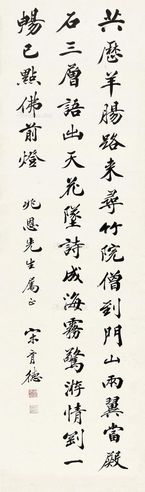 共歷羊腸路來尋竹院僧到門山兩翼當殿
石三層語出天花墜詩成海霧游情一
暢已點佛前燈
兆恩先生屬正
宋育德